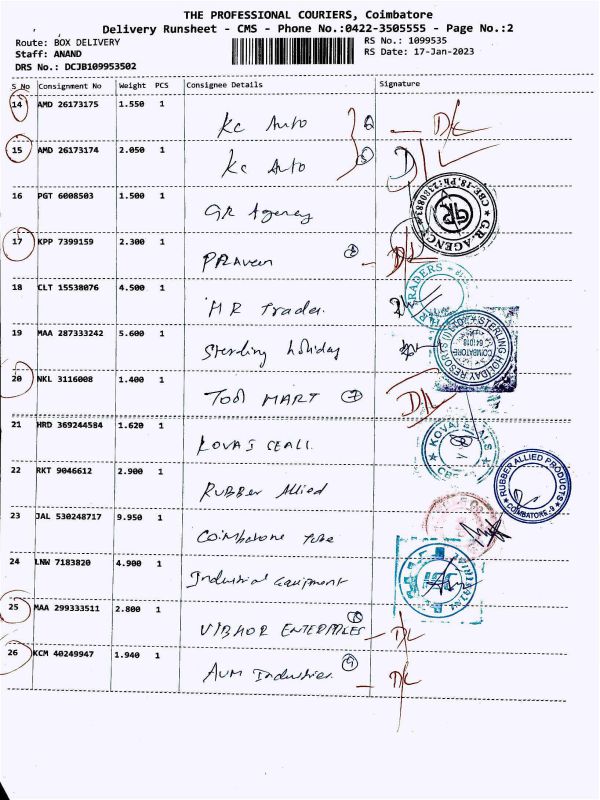 THE PROFESSIONAL COURIERS, Coimbatore
Delivery Runsheet - CMS - Phone No.:0422-3505555 - Page No.:2
Route: BOX DELIVERY
RS No.: 1099535
Staff: ANAND
RS Date: 17-Jan-2023
DRS No.: DCJB109953502
S No Consignment No Weight PCS Consignee Details Signature
14 AMD 26173175 1.550 1
Kc Auto D/L
15 AMD 26173174 2.050 1
Kc Auto D/L
16 PGT 6008503 1.500 1
GR Agency
G.R. AGENCY CBE-18
17 KPP 7399159 2.300 1
PRAveen D/L
18 CLT 15538076 4.500 1
M R Trader.
TRADERS
19 MAA 287333242 5.600 1
Sterling holiday
STERLING HOLIDAY RESORTS COIMBATORE
20 NKL 3116008 1.400 1
TOOl MART 7 D/L
21 HRD 369244584 1.620 1
KOVAI SEALS
22 RKT 9046612 2.900 1
Rubber Allied
RUBBER ALLIED PRODUCTS COIMBATORE-9
23 JAL 530248717 9.950 1
Coimbatore Tube
24 LNW 7183820 4.900 1
Industrial Equipment
25 MAA 299333511 2.800 1
VIBHOR ENTERPRISES 8 D/L
26 KCM 40249947 1.940 1
AVM Industries. 9 D/L